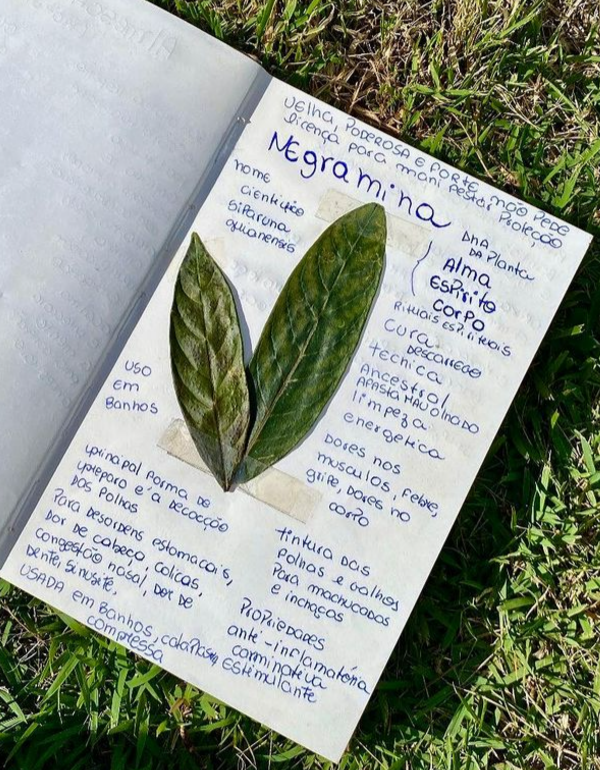 VELHA, PODEROSA E FORTE, NÃO PEDE
licença para manifestar Proteção
NEgramina
nome
científico
siparuna
guianensis
DNA
DA Planta
Alma
ESPÍRITO
CORPO
RITUAIS ESPIRITUAIS
cura
DESCARREGO
técnica
Ancestral
AFASTA MAU OLHADO
limpeza
energética
USO
em
Banhos
Dores nos
musculos, febre,
gripe, Dores no
corpo
principal forma de
preparo é a Decocção
DAS folhas
Para desordens estomacais,
Dor de cabeça, colicas,
congestão nasal, dor de
Dente, sinusite,
USADA em Banhos, cataplasma,
compressa
tintura das
folhas e galhos
Para machucados
e inchaços
Propriedades
ante-inflamatória
carminativa
Estimulante